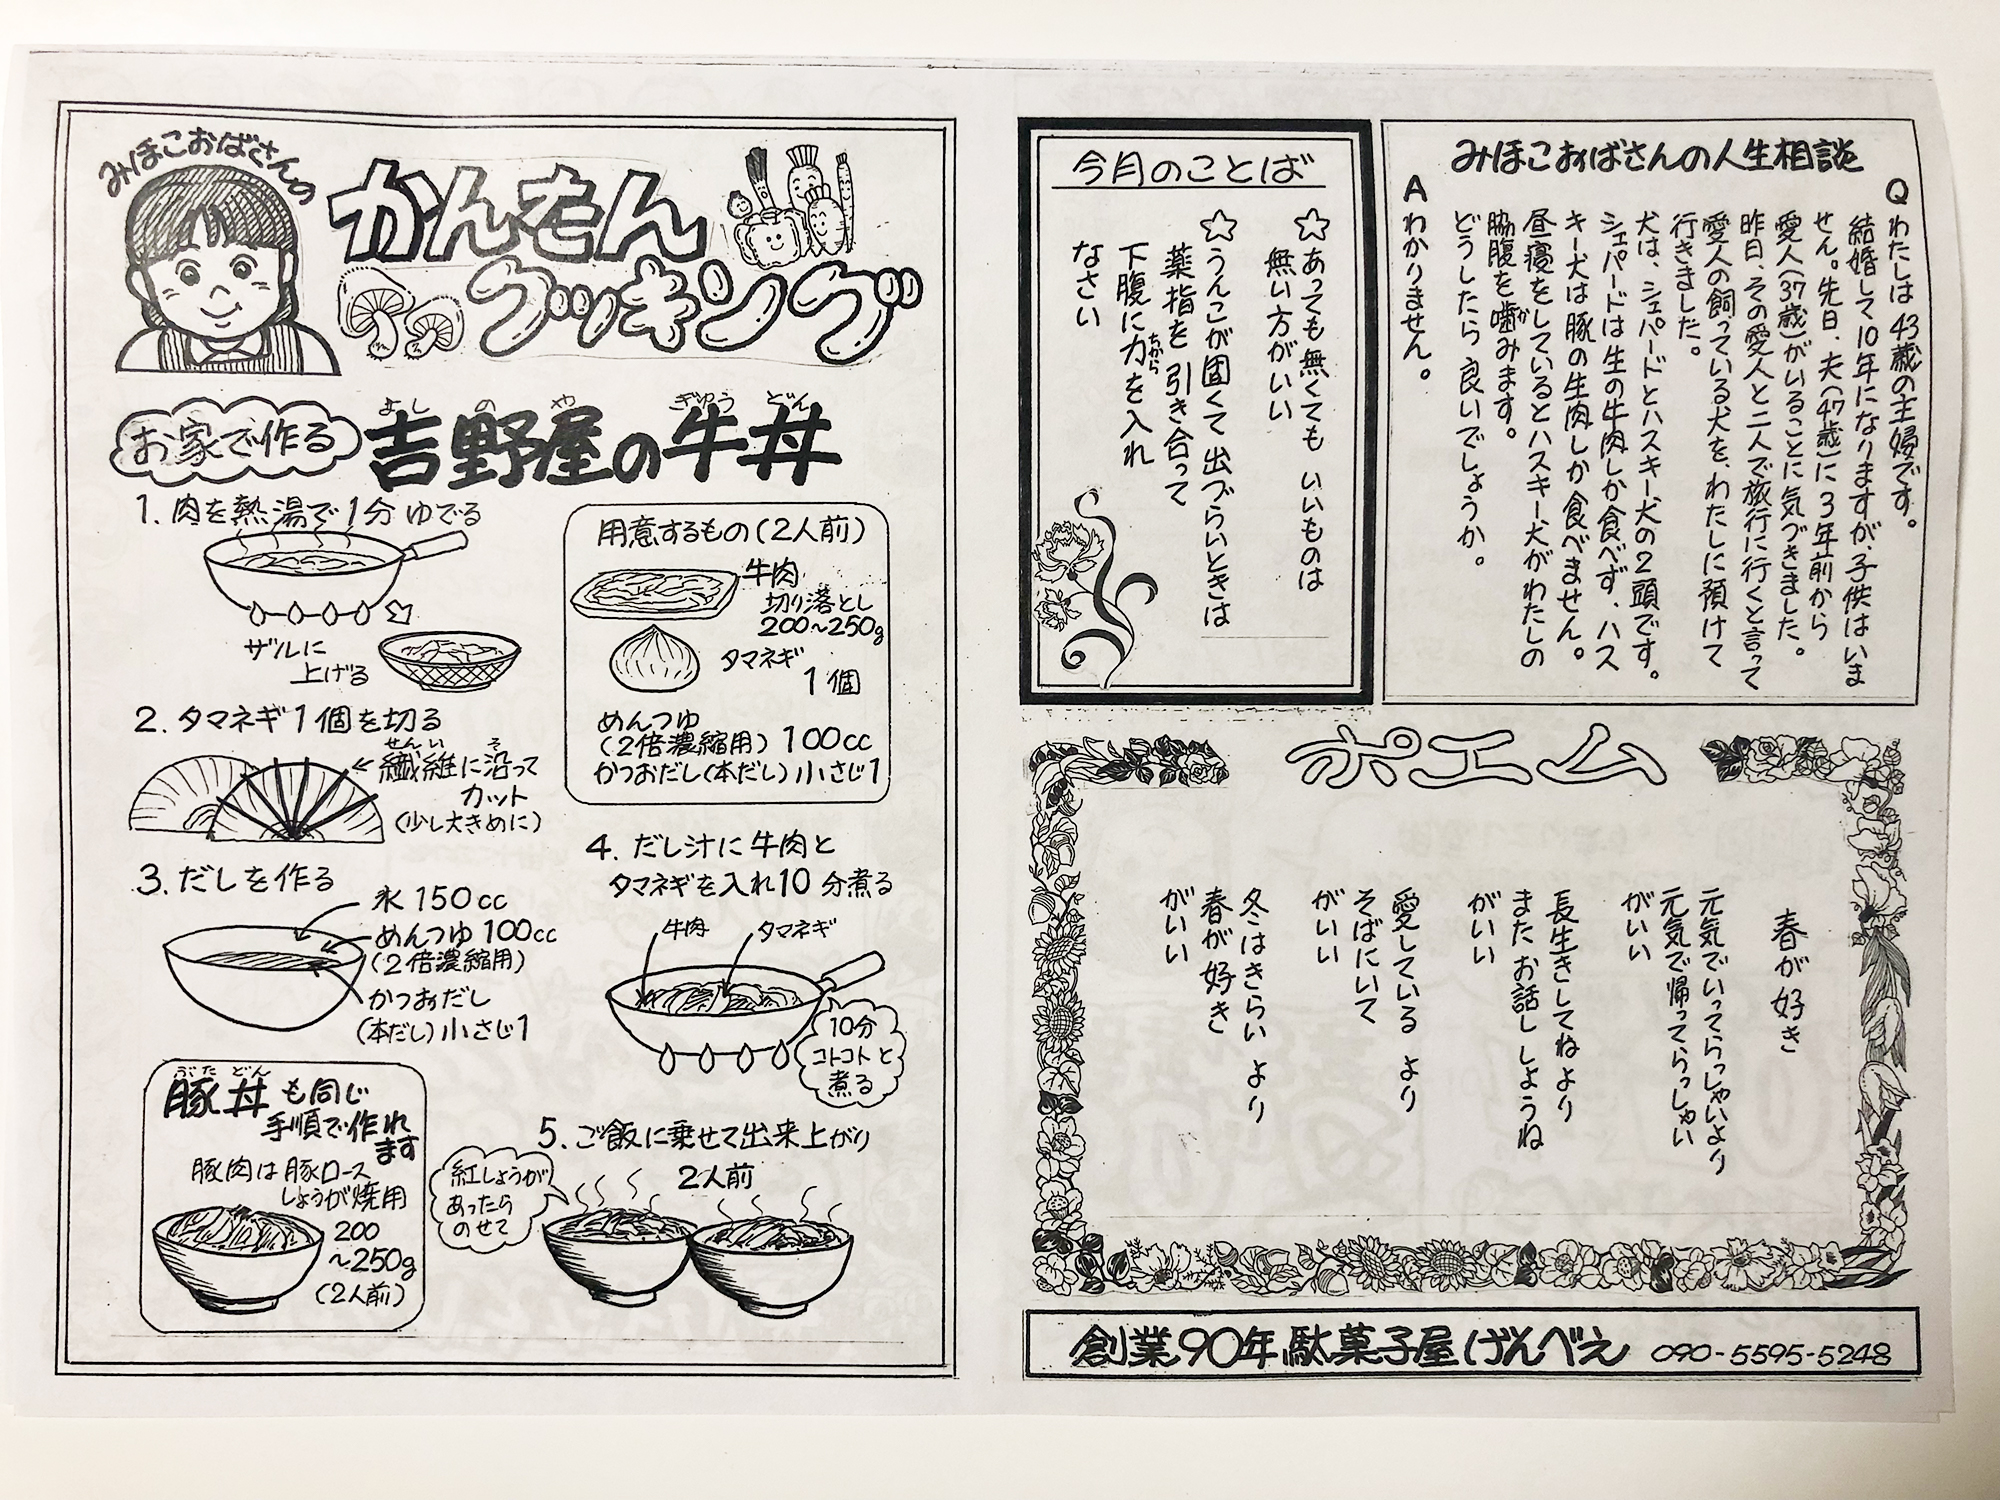 みほこおばさんの
かんたん
クッキング
お家で作る
吉野屋の牛丼
よしのやぎゅうどん
1. 肉を熱湯で1分ゆでる
ザルに
上げる
用意するもの(2人前)
牛肉
切り落とし
200~250g
タマネギ
1個
めんつゆ
(2倍濃縮用) 100cc
かつおだし(本だし)小さじ1
2. タマネギ1個を切る
せんい そ
繊維に沿って
カット
(少し大きめに)
3. だしを作る
水150cc
めんつゆ100cc
(2倍濃縮用)
かつおだし
(本だし)小さじ1
4. だし汁に牛肉と
タマネギを入れ10分煮る
牛肉
タマネギ
10分
コトコトと
煮る
5. ご飯に乗せて出来上がり
2人前
紅しょうが
あったら
のせて
ぶたどん
豚丼も同じ
手順で作れ
ます
豚肉は豚ロース
しょうが焼用
200
~250g
(2人前)
みほこおばさんの人生相談
Q わたしは43歳の主婦です。
結婚して10年になりますが、子供はいま
せん。先日、夫(47歳)に3年前から
愛人(37歳)がいることに気づきました。
昨日、その愛人と二人で旅行に行くと言って
愛人の飼っている犬を、わたしに預けて
行きました。
犬は、シェパードとハスキー犬の2頭です。
シェパードは生の牛肉しか食べず、ハス
キー犬は豚の生肉しか食べません。
昼寝をしているとハスキー犬がわたしの
脇腹を噛みます。
か
どうしたら良いでしょうか。
A わかりません。
今月のことば
☆あっても無くても いいものは
無い方がいい
☆うんこが固くて出づらいときは
薬指を引き合って
下腹に力を入れ
ちから
なさい
ポエム
春が好き
元気でいってらっしゃいより
元気で帰ってらっしゃい
がいい
長生きしてねより
またお話ししようね
がいい
愛している より
そばにいて
がいい
冬はきらい より
春が好き
がいい
創業90年駄菓子屋げんべえ 090-5595-5248